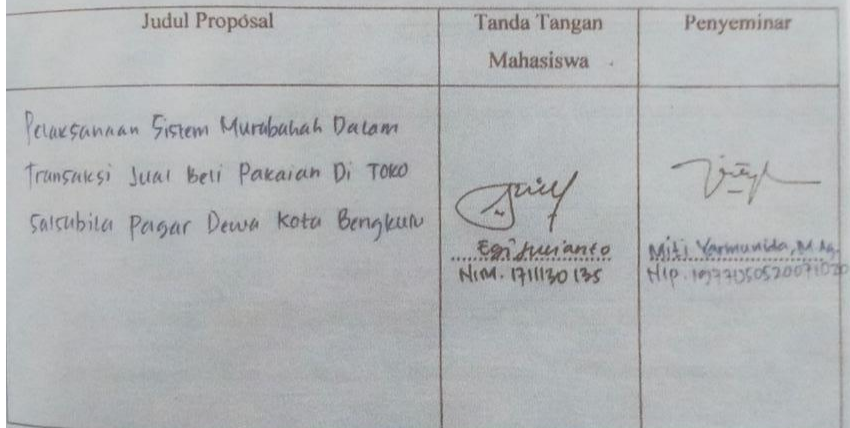 Judul Proposal
Tanda Tangan
Mahasiswa
Penyeminar
Pelaksanaan Sistem Murabahah Dalam
Transaksi Jual Beli Pakaian Di TOKO
Salsubila Pagar Dewa Kota Bengkulu
Egi Jurianto
NIM. 1711130135
Miti Yarmunida, M.Ag
NIP. 1977050520071020